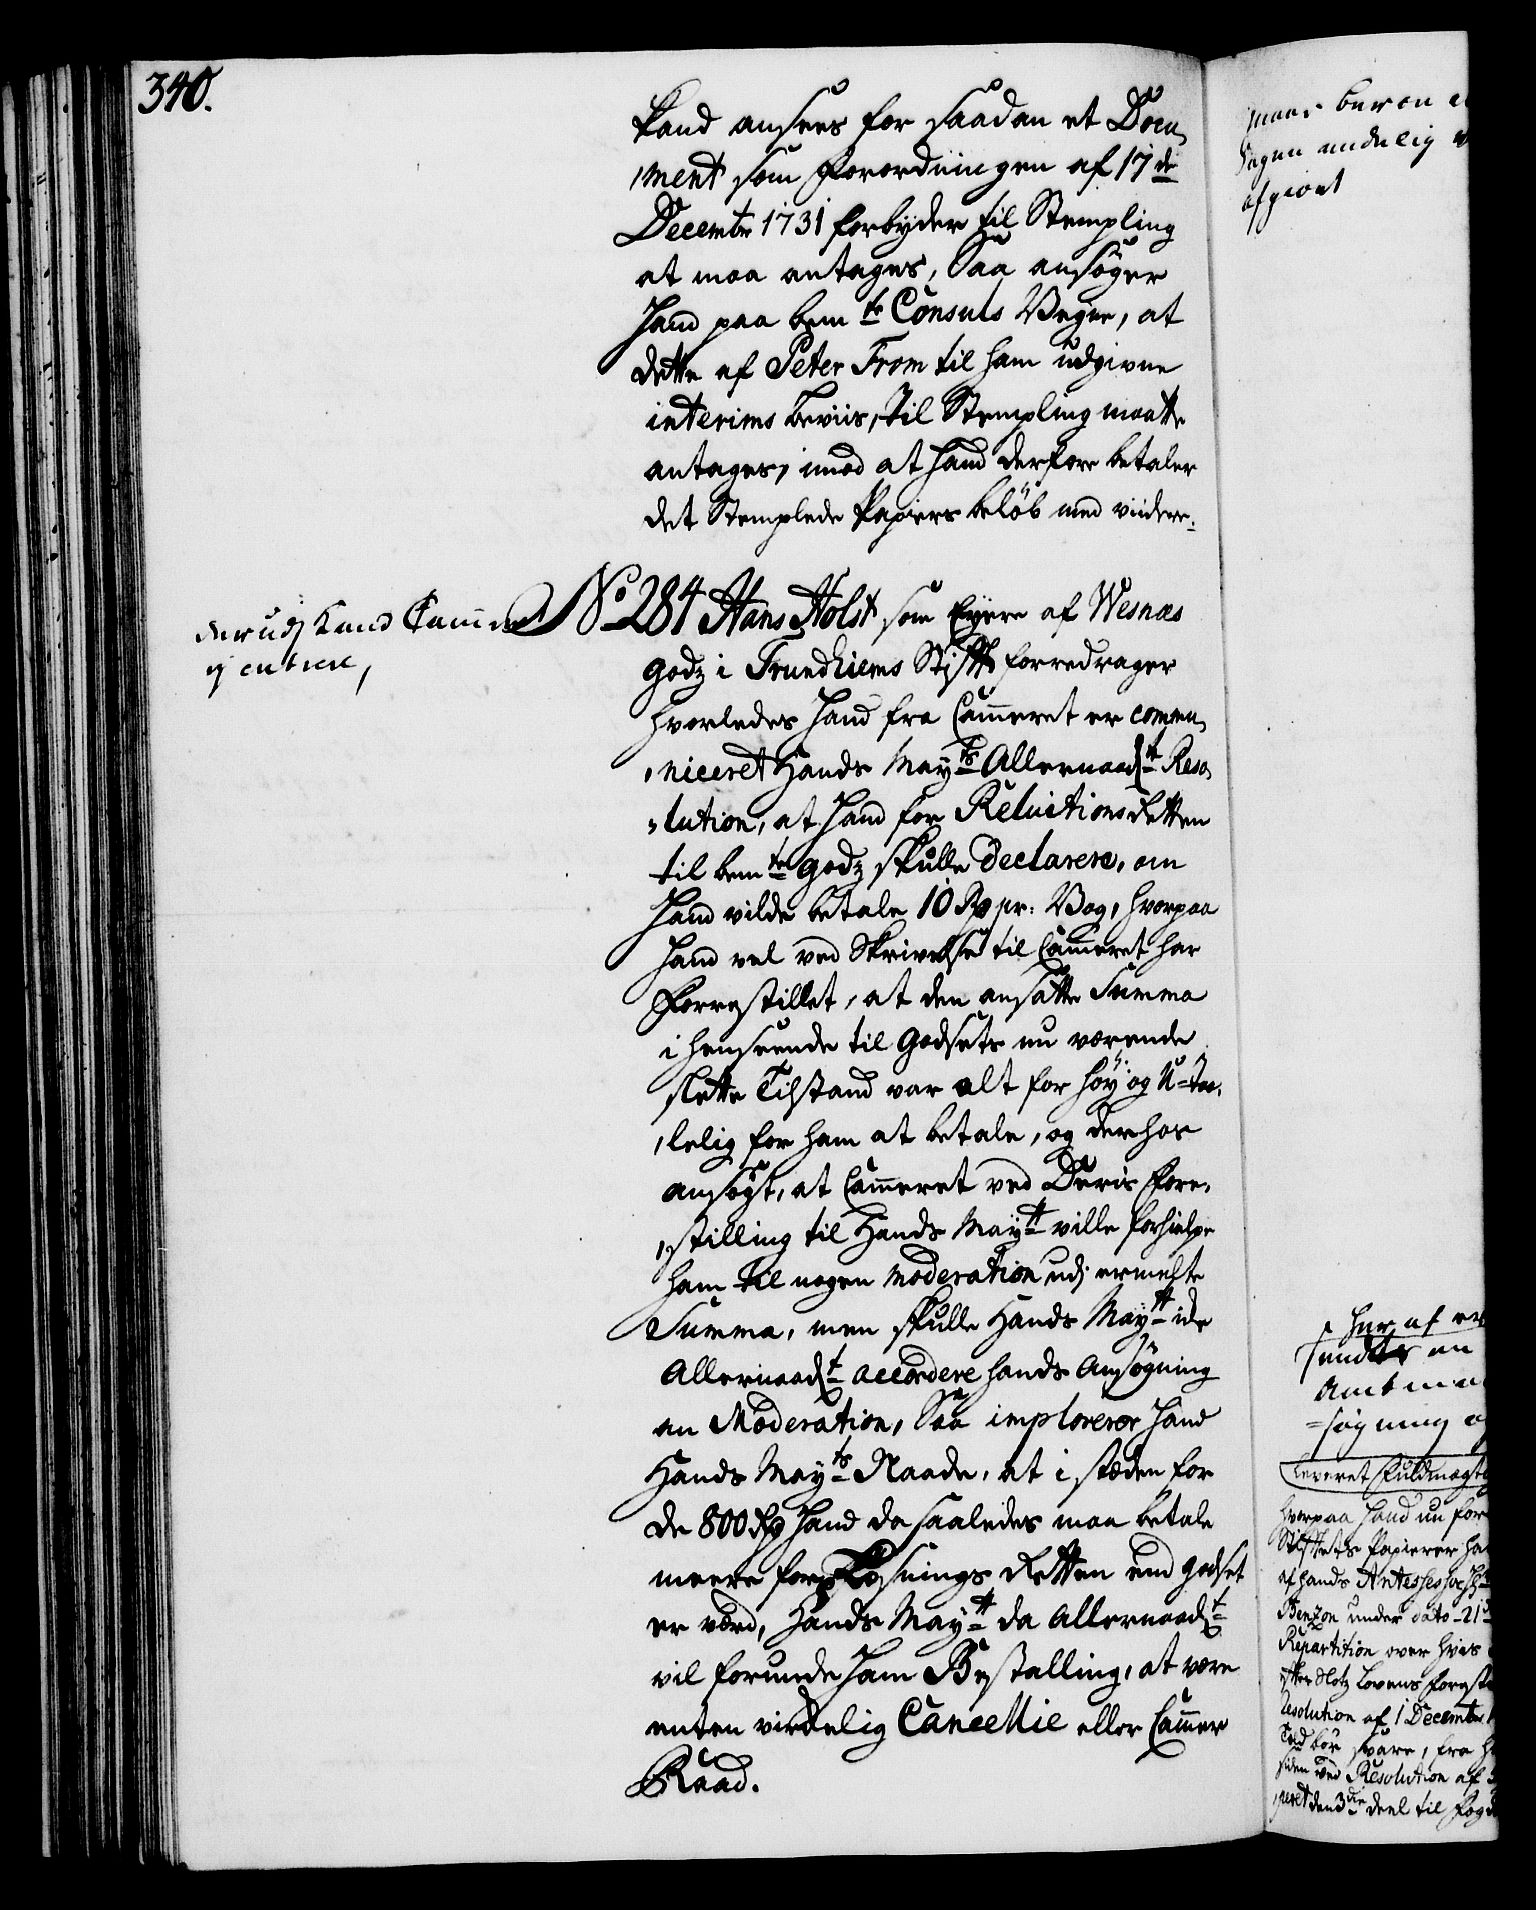 340.
kand ansees for saadan et Docu,
,ment som Forordningen af 17de
Decembr 1731 forbyder til Stempling
at maa antages, Saa ansøger
Hand paa bemte Consuls Vegne, at
dette af Peter From til ham udgivne
interims beviis, til Stempling maatte
antages, imod at Hand derfore betaler
det Stemplede Papiirs beløb med videre.
herudj kand Cammeret
ej entrere,
No 284 Hans Holst som Eyere af Wesnæs
Godz i Trundhiems Stift forredrager
hvorledes Hand fra Cammeret er commu,
,niceret Hands Mayts Allernaadste Reso,
,lution, at Hand for Reluitions Retten
til bemte Godz skulle declarere, om
Hand vilde betale 10 Rd pr: Vog, hvorpaa
Hand vel ved Skrivelse til Cammeret har
forrestillet, at den ansatte Summa
i henseende til Godsets nu værende
slette Tilstand var alt for høy og U-taa,
,lelig for ham at betale, og derhos
ansøgt, at Cammeret ved Deris Fore,
,stilling til Hands Maytt ville forhielpe
ham til nogen moderation udj ermelte
Summa, men skulle Hands Maytt icke
Allernaadst accordere hands Ansøgning
om Moderation, Saa implorerer Hand
Hands Mayts Naade, at i stæden for
de 800 Rd Hand da saaledes maa betale
meere for Løsnings Retten end Godset
er værd, Hands Maytt da Allernaadst
vil forunde Ham Bestalling, at være
enten virkelig Cancellie eller Cammer
Raad.
afgiort
her af
sendes en
Amtma
=søgning
leveret Fuldmægtig
hvorpaa Hand nu for
Stiftets Papierer ha
af hands Antessessor
Benzon under dato 21
Repartition over hvis
Resolution af 1 Decembr
siden ved Resolution af
den 3die deel til Fog